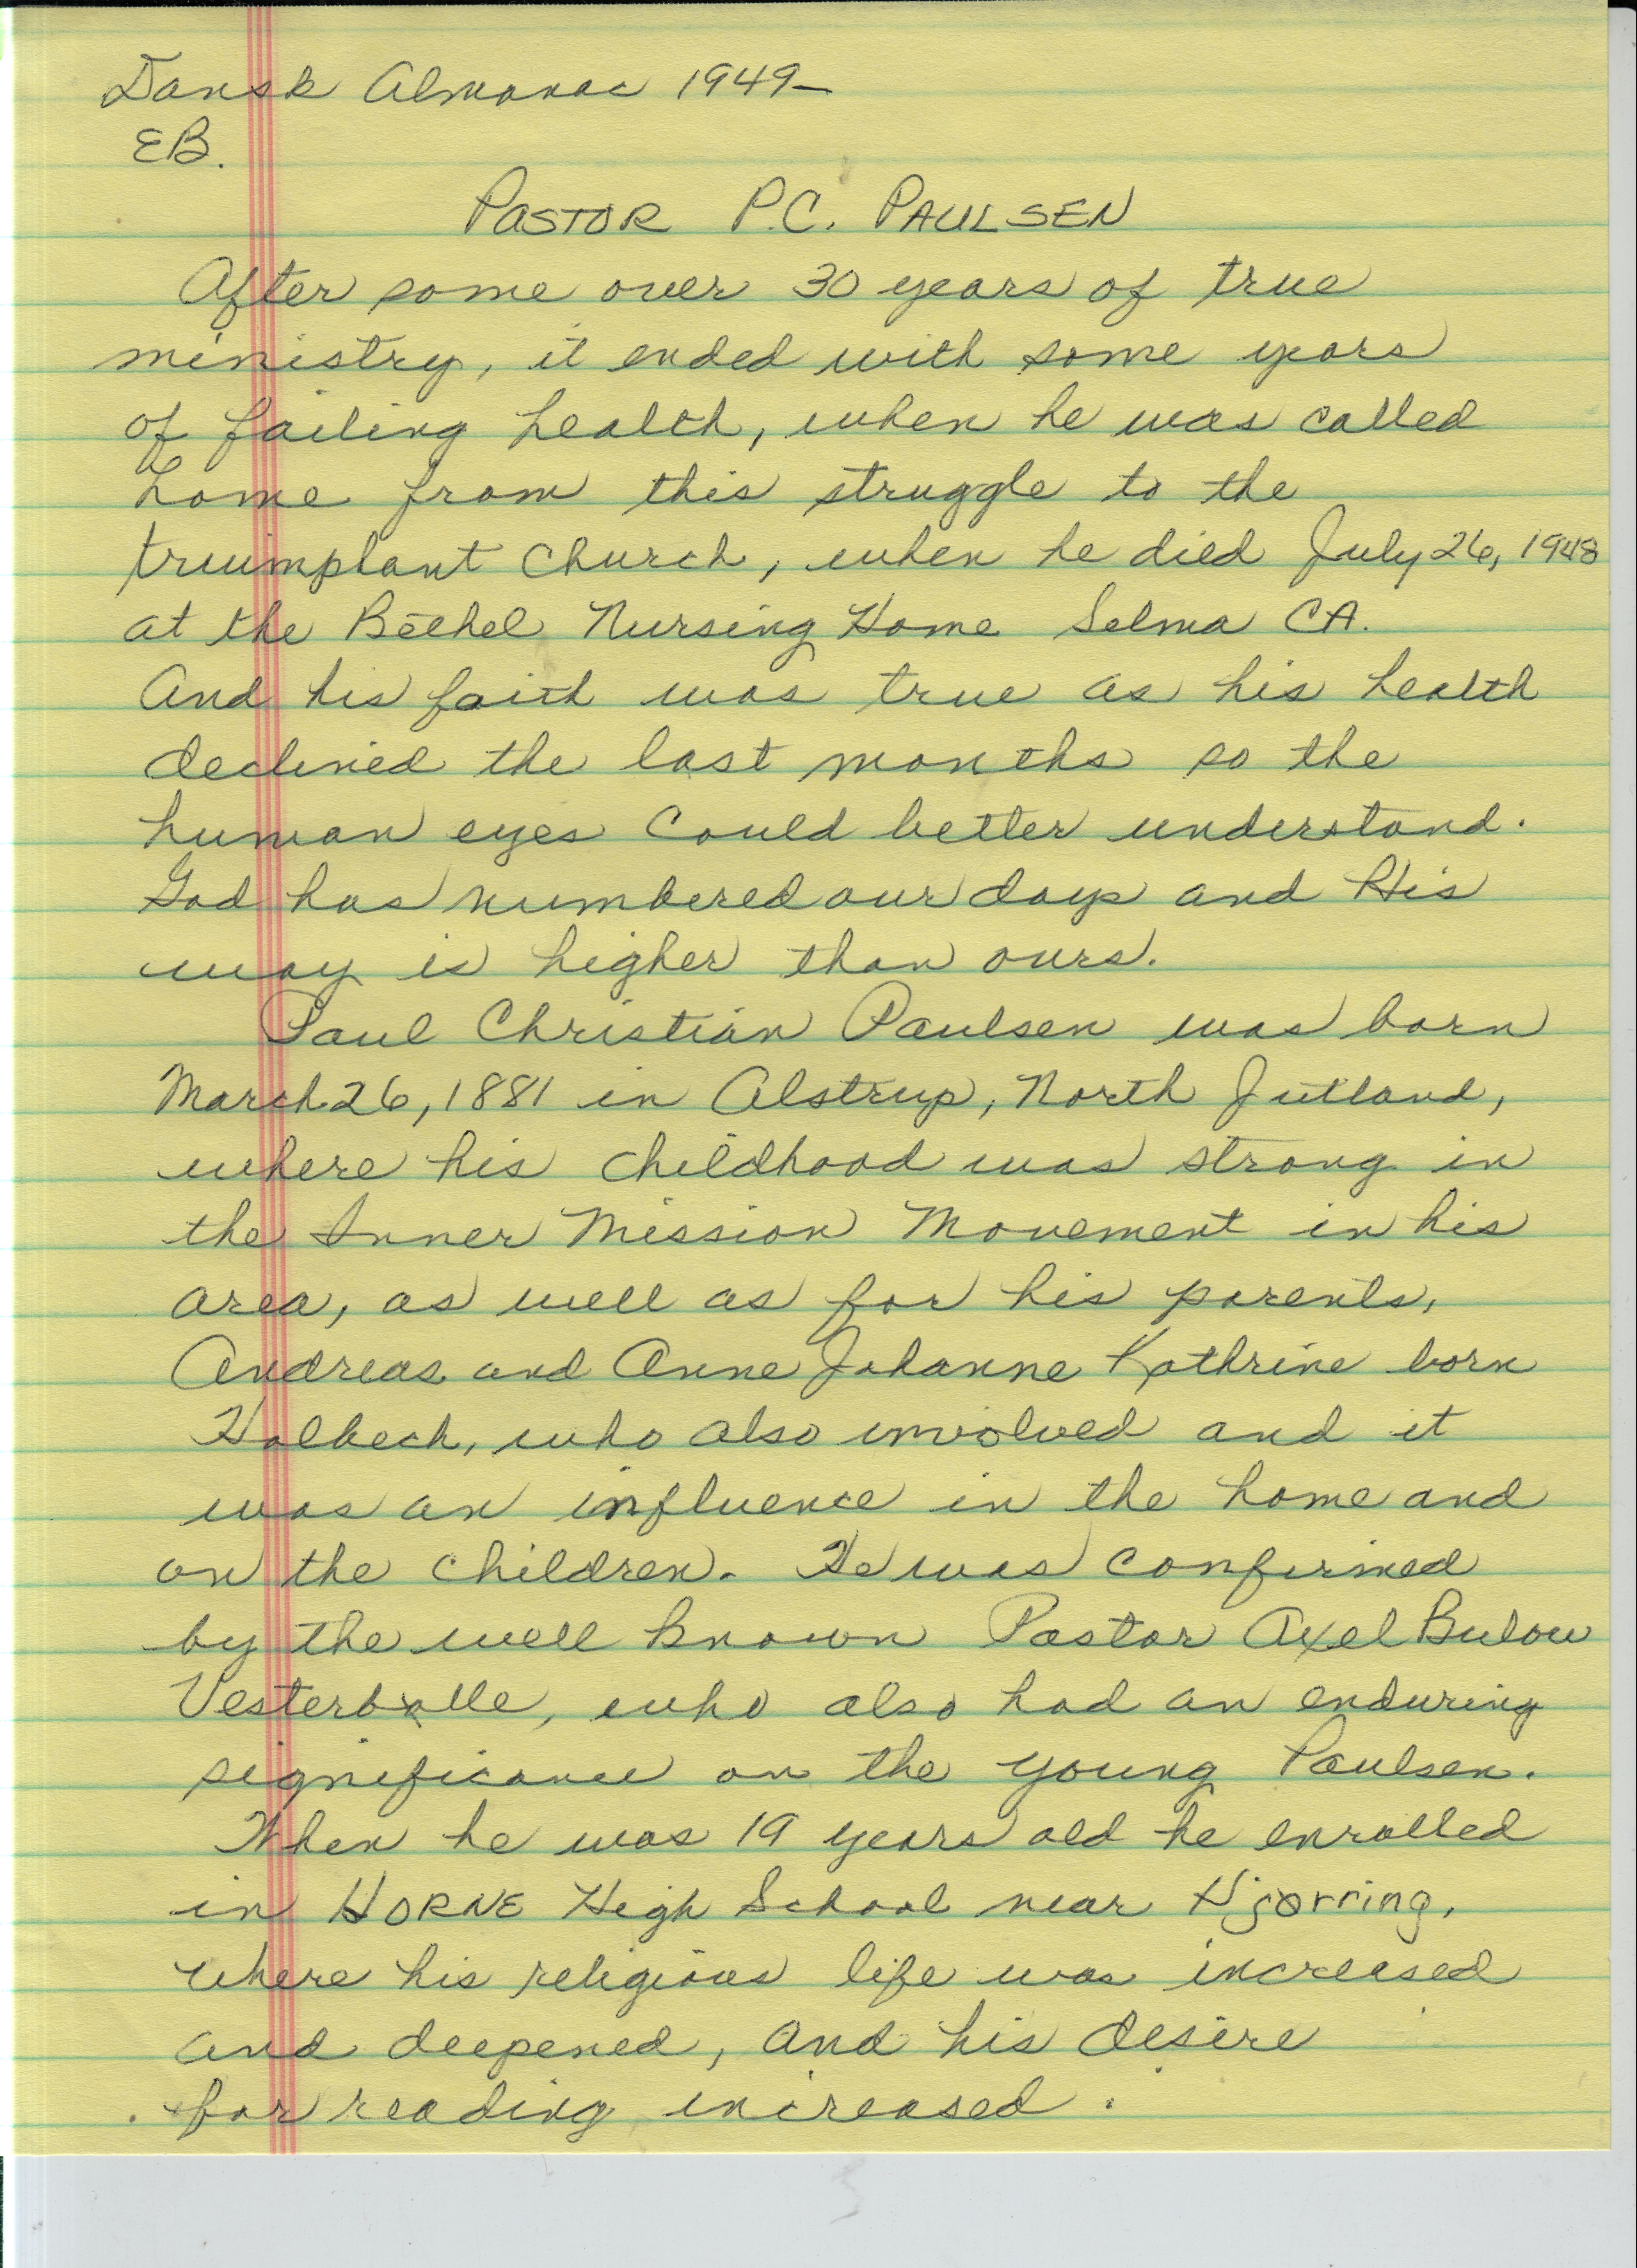 Dansk Almanac 1949-
EB.
PASTOR P.C. PAULSEN
After some over 30 years of true
ministry, it ended with some years
of failing health, when he was called
home from this struggle to the
truimphant church, when he died July 26, 1948
at the Bethel Nursing Home Selma CA.
And his faith was true as his health
declined the last months so the
human eyes could better understand.
God has numbered our days and His
way is higher than ours.
Paul Christian Paulsen was born
March 26, 1881 in Alstrup, North Jutland,
where his childhood was strong in
the Inner Mission Movement in his
area, as well as for his parents,
Andreas and Anne Johanne Kathrine born
Holbech, who also involved and it
was an influence in the home and
on the children. He was confirmed
by the well known Pastor Axel Bulow
Vesterbølle, who also had an enduring
significance on the young Paulsen.
When he was 19 years old he enrolled
in HORNE High School near Hjørring,
where his religious life was increased
and deepened, and his desire
for reading increased.